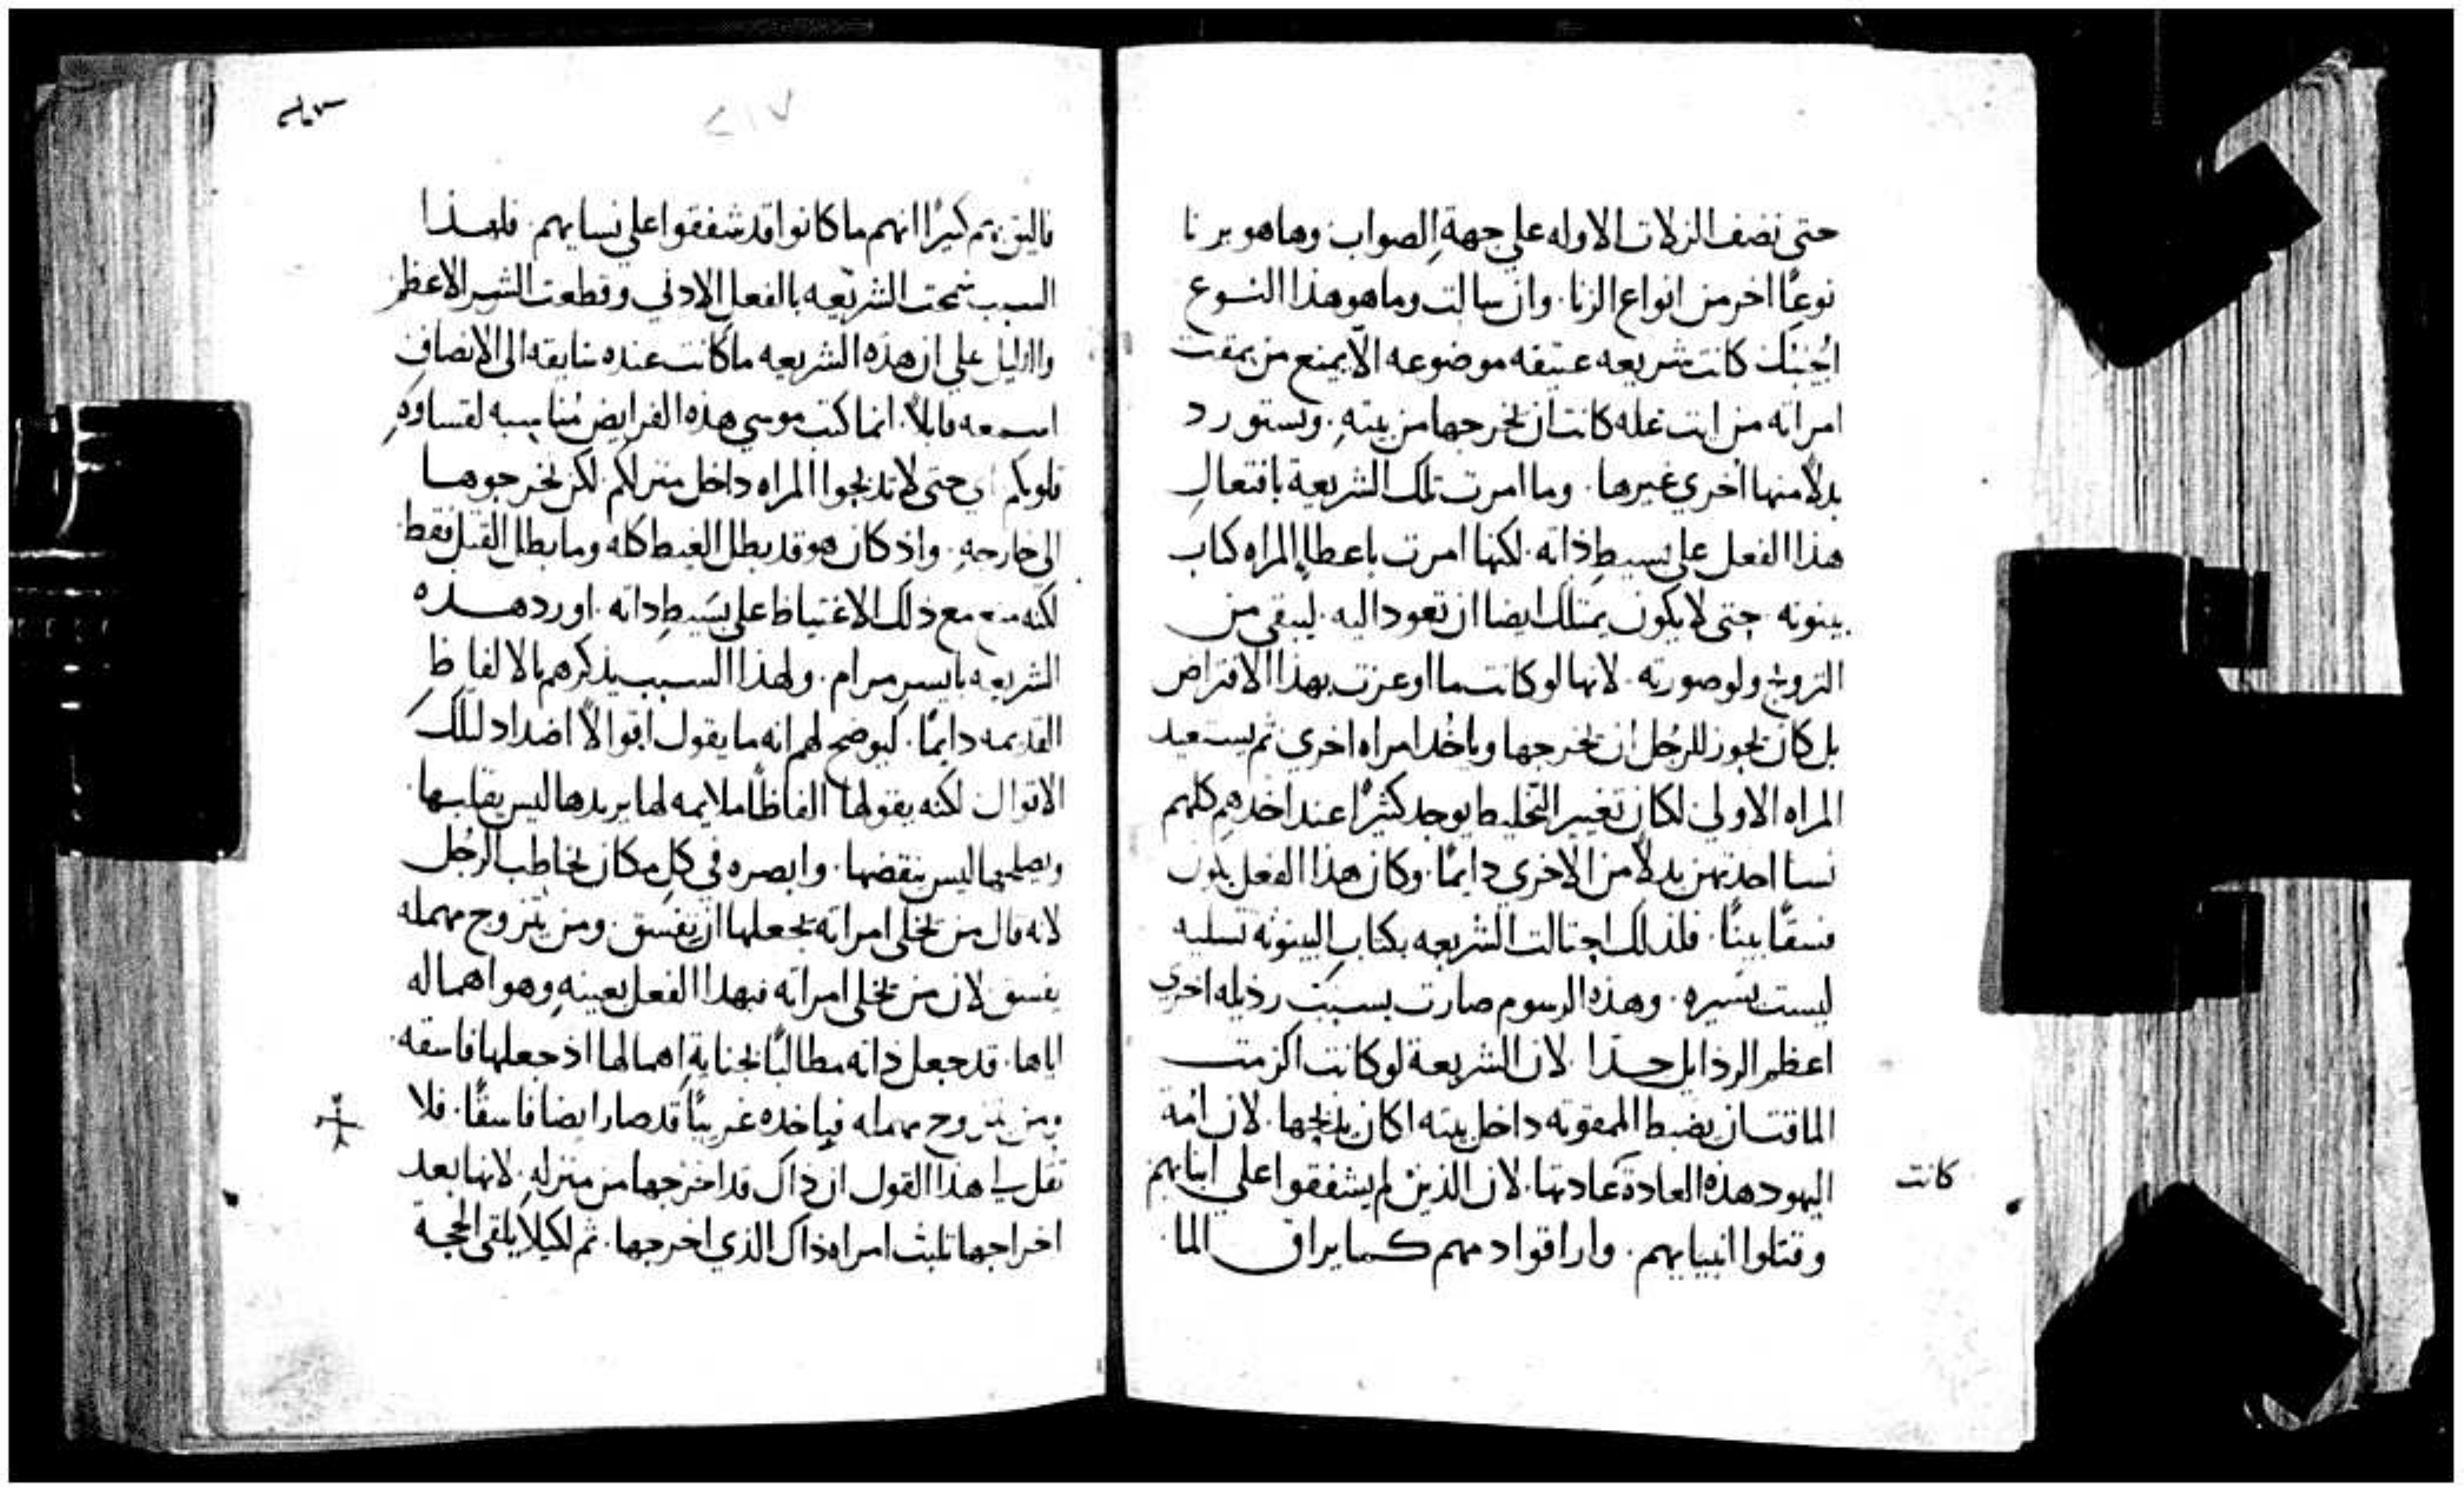 حتى نضف الزلات الاوله على جهة الصواب وها هو يرنا
نوعًا اخر من انواع الزنا. وان سالت وما هو هذا النوع
اجبتك كانت شريعه عتيقه موضوعه الّا يمنع من يمقت
امراته من ايت عله كانت ان يخرجها من بيته. ويستورد
بدلًا منها اخري غيرها. وما امرت تلك الشريعة بافتعال
هذا الفعل على بسيط ذاته. لكنها امرت باعطا المراه كتاب
بينونه حتى لا يكون يمتلك ايضا ان تعود اليه. ليبقى من
التزوج ولو صورته. لانها لو كانت ما اوعزت بهذا الافتراض
بل كان يجوز للرجُل ان يخرجها وياخُد امراه اخري ثم يستعيد
المراه الاولي لكان تغيير التخليط يوجد كثيرًا عند اخدهم كلهم
نسا احدتهن بدلًا من الاخري دايمًا. وكان هذا الفعل يكون
فسقًا بينًا. فلذلك احتالت الشريعه بكتاب البينونه تسليه
ليست يسيره. وهذه الرسوم صارت بسبب رذيله اخري
اعظم الرذايل جدًا. لان الشريعة لو كانت الزمت
الماقت ان يضبط الممقوته داخل بيته لكان يذبحها. لان امة
اليهود هذه العادة عادتها. لان الذين لم يشفقوا على ابنايهم
كانت
وقتلوا انبيايهم. واراقوا دمهم كما يراق الما
٢١٧
فاليق بهم كثيرًا انهم ما كانوا قد شفقوا على نسايهم. فلهذا
السبب سمحت الشريعه بالفعل الادني وقطعت الشر الاعظم
والدليل على ان هذه الشريعه ما كانت عنده سابقه الى الانصاف
اسمعه قايلًا. انما كتب موسي هذه الفرايض مناسبه لقساوة
قلوبكم اي حتى لا تذبحوا المراه داخل منزلكم لكن تخرجوها
الى خارجه. واذ كان هو قد بطل الغيظ كله وما بطل القتل فقط
لكنه منع مع ذلك الاغتياظ على بسَيط داته. اورد هذه
الشريعه بايسر مرام. ولهذا السبب يذكرهم بالالفاظ
القديمه دايمًا. ليوضح لهم انه ما يقول اقوالًا اضداد لتلك
الاقوال لكنه يقولها الفاظًا ملايمه لها يريدها ليس يقلبها
ويصلحها ليس ينقضها. وابصره في كل مكان يخاطب الرجُل
لانه قال من يخلى امراته يجعلها ان تفسق. ومن يتزوج مهمله
يفسق لان من يخلى امراته فبهدا الفعل بعينه وهو اهماله
اياها. قد جعل ذاته مطالبًا بجناية اهمالها اذ جعلها فاسقه.
ومن يتزوج مهمله فياخذه غريبًا قد صار ايضا فاسقًا. فلا
تقل لي هذا القول ان ذاك قد اخرجها من منزله. لانها بعد
اخراجها تلبث امراه ذاك الذي اخرجها. ثم لكيلا يلقى الحجة